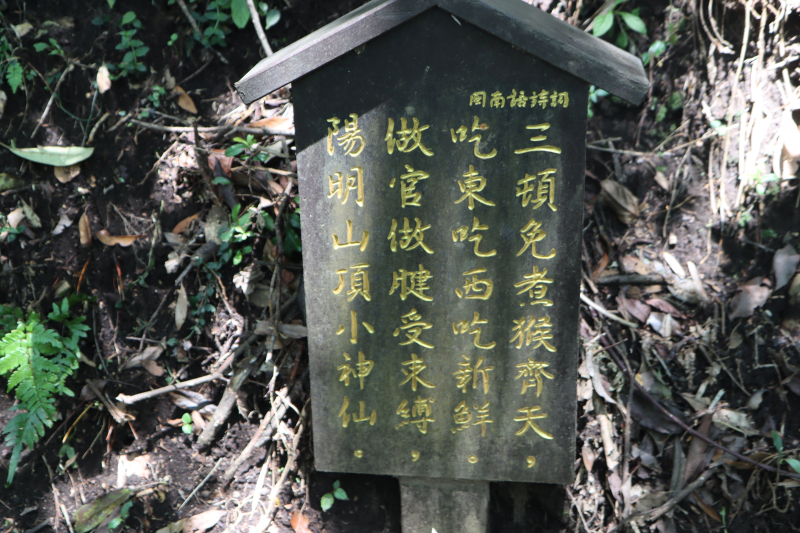 閩南語詩詞
三頓免煮猴齊天，
吃東吃西吃新鮮。
做官做健受束縛，
陽明山頂小神仙。